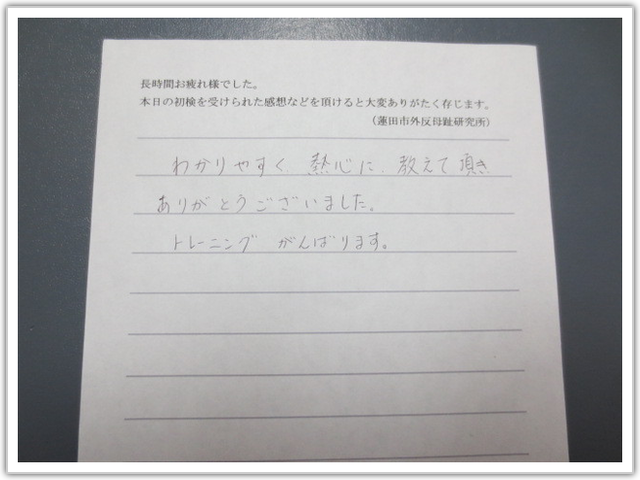 長時間お疲れ様でした。
本日の初検を受けられた感想などを頂けると大変ありがたく存じます。
（蓮田市外反母趾研究所）
わかりやすく、熱心に、教えて頂き
ありがとうございました。
トレーニング がんばります。